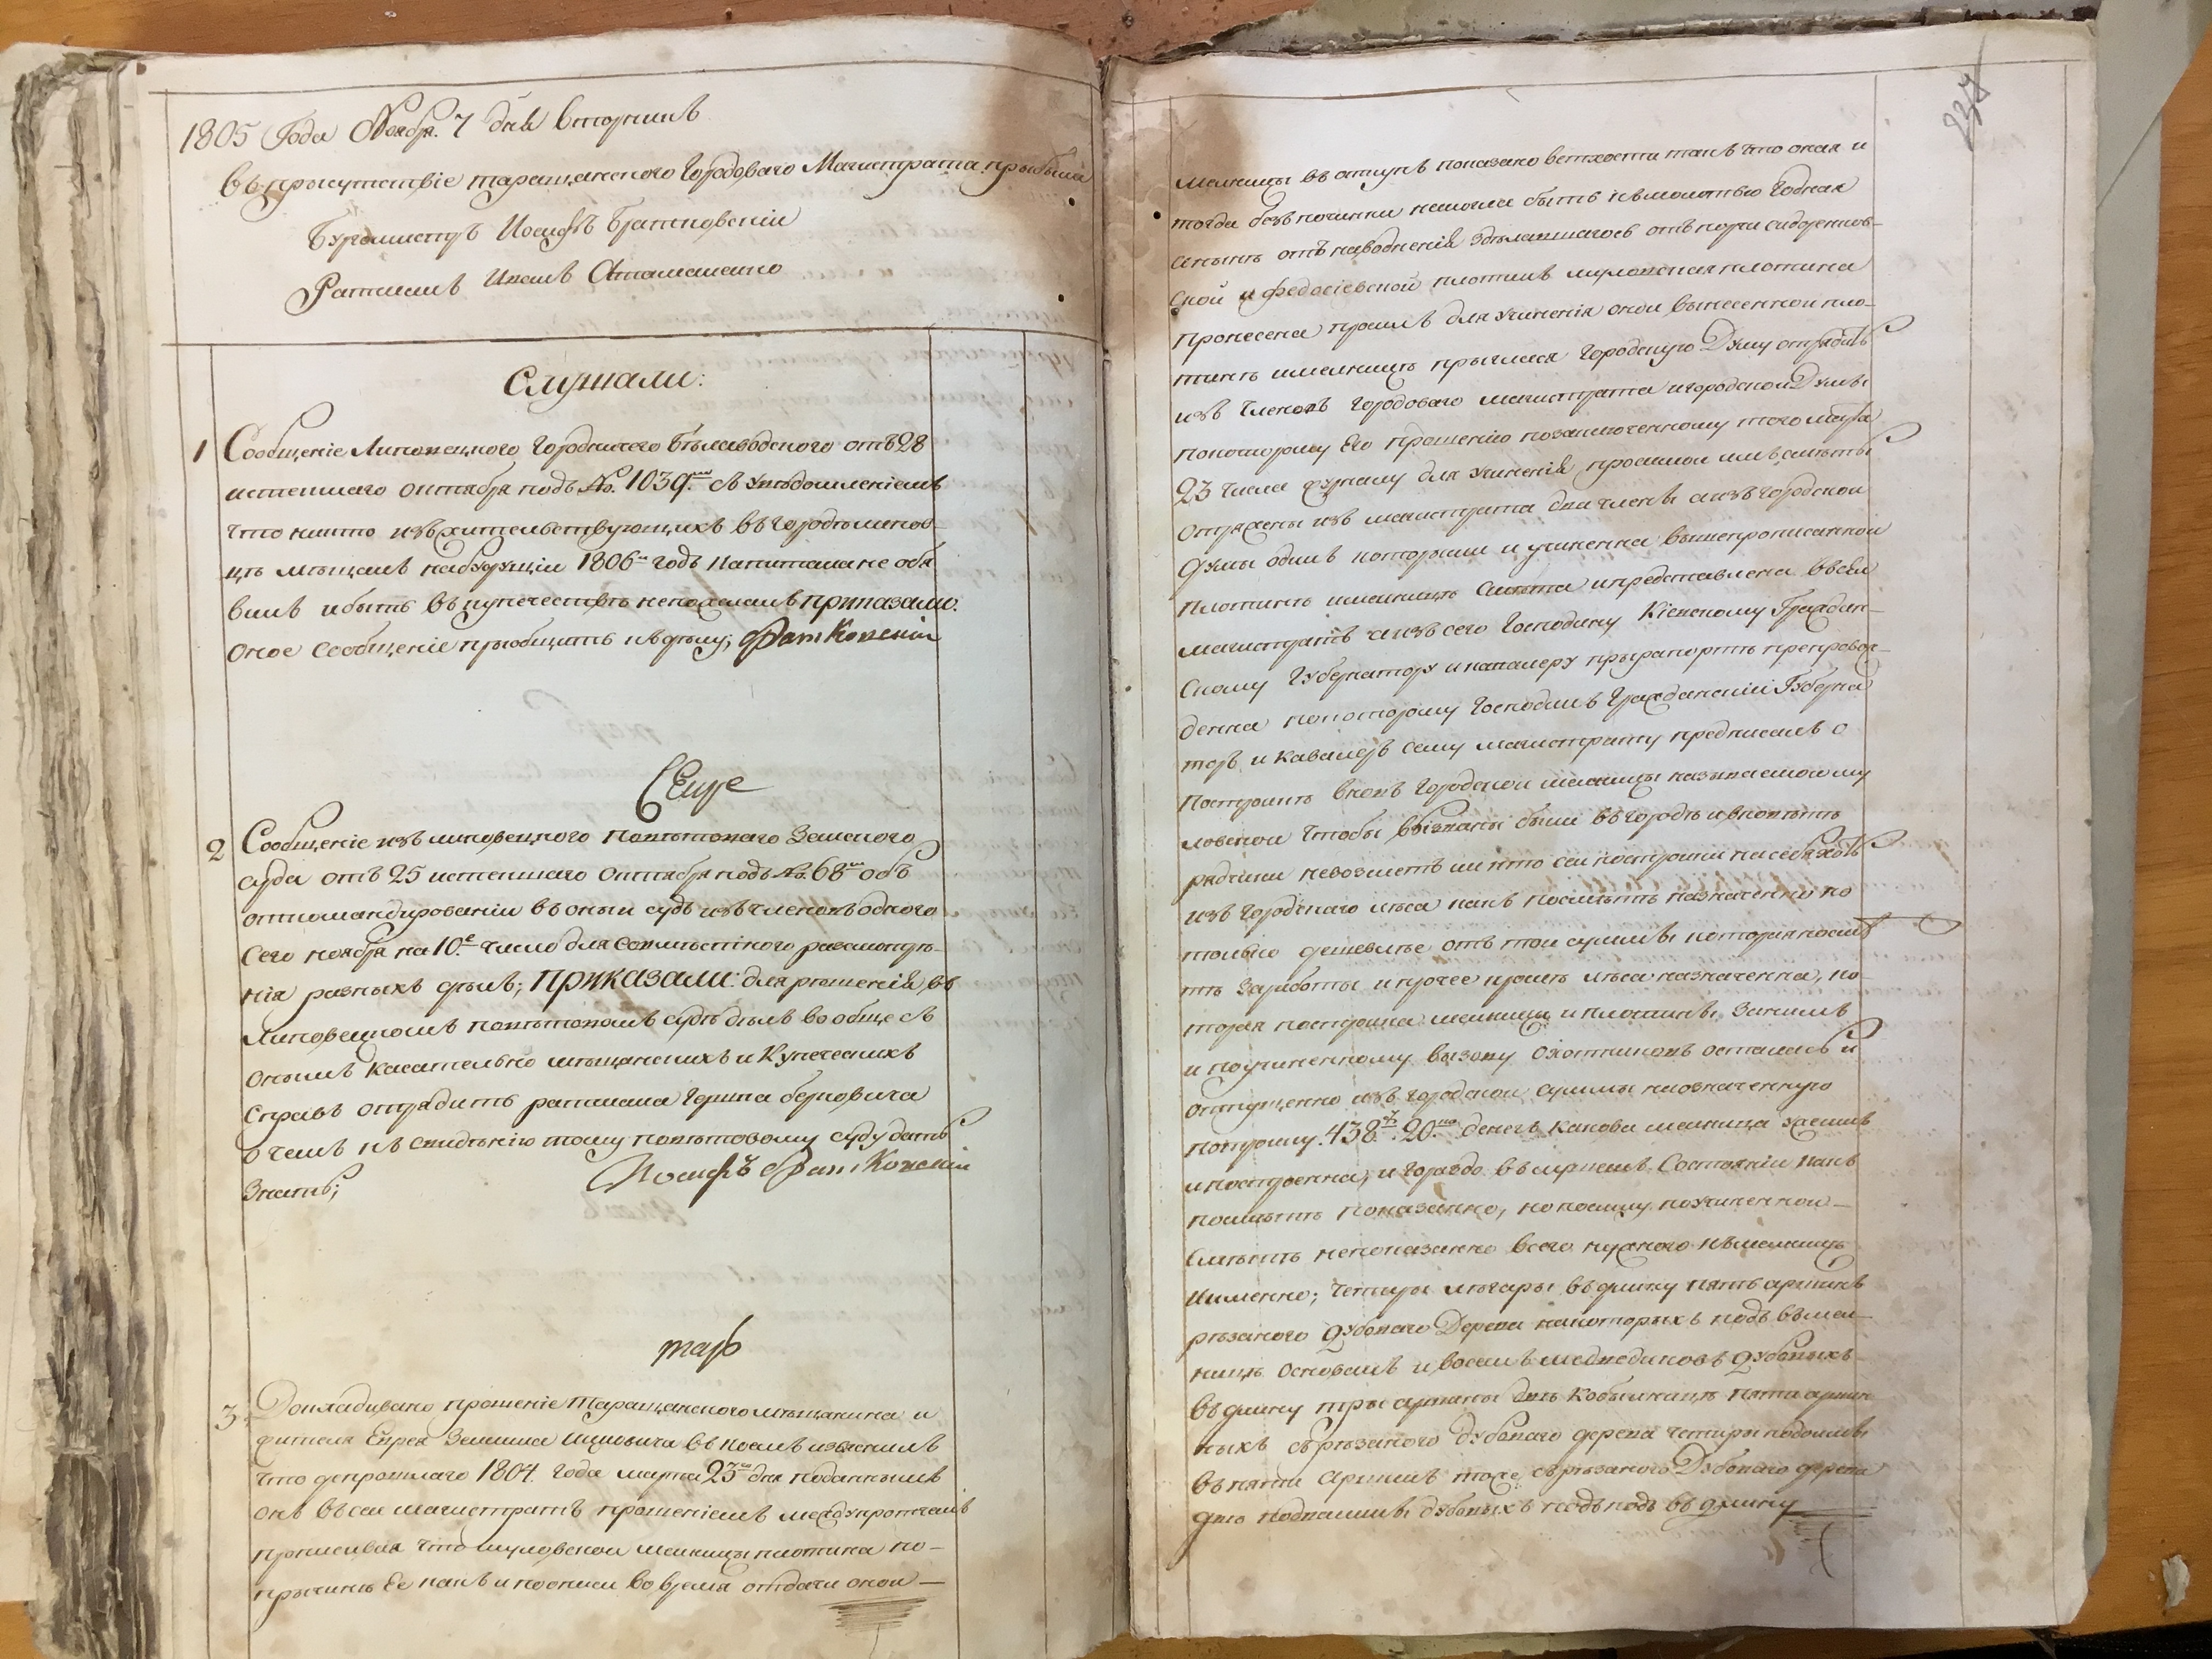 1805 Года Ноября 7 дня вторникъ
въ присутствіе таращанского Городоваго Магистрата прибыли
Бургомистръ Иосифъ Братковскій
Ратманъ Иванъ Атаманенко
Слушали:
1 Сообщеніе Липовецкого Городничего Бѣлаводского отъ 28
истекшаго октября подъ №. 1039. съ увѣдомленіемъ
что никто изъ жительствующихъ въ Городѣ липов-
цѣ мѣщанъ на будущій 1806й годъ капитала не обя
вилъ и быть въ купечествѣ непожелалъ приказали:
оное сообщеніе приобщить къ дѣлу;
Еще
2 Сообщеніе изъ липовецкого повѣтоваго Земского
суда отъ 25 истекшаго октября подъ №. 68 объ
откомандированіи въ оный судъ изъ членовъ одного
сего ноября на 10е. число для совмѣстного разсмотрѣ-
нія разныхъ дѣлъ; приказали: для рѣшенія въ
Липовецкомъ повѣтовомъ судѣ дѣлъ вообще съ
онымъ касательно мѣщанскихъ и Купеческихъ
справъ отрядить ратмана Герша берковича
о чемъ къ свидѣнію тому повѣтовому суду дать
знать; Иосифъ Братковскій
тожъ
3 Докладивано прошеніе Таращанского мѣщанина и
жителя Еврея Зелмана Ицковича въ коемъ изяснилъ
что до прошлаго 1804. года марта 23 дня поданнымъ
онъ въ сей магистратъ прошеніемъ между протчимъ
прописивая что шуловской мелницы плотина по-
причинѣ Ее какъ и поописи во время отдачи оной —
мелницы въ откупъ показано ветхости такъ что оная и
тогда безъ починки немогла быть къ молотью годная
отъ наводненія здѣлавшагося отъ
ской и федосіевской плотинъ плотина
пронесена просилъ для учиненія оной вынесенной пло-
тинѣ и мелницѣ Городскую Думу отрядить
изъ членовъ городоваго магистрата и городской Думы
покоторому Его прошенію позаключенному того марта
23 числа журналу для учиненія просимой имъ смѣты
отряжены изъ магистрата два члены а изъ городской
Думы одинъ которыми и учиненна вышепрописанной
плотинѣ и мелницѣ смѣта и представлена въ сей
магистратъ а изъ сего Господину Кіевскому Граждан-
скому Губернатору и кавалеру при рапортѣ препровож-
денна покоторому Господинъ Гражданскій Губерна
торъ и Кавалеръ сему магистрату предписалъ о
построить вновь Городской мелницы називаемой шу
ловской чтобы взізваны были въ городъ и
рядчики невозметъ ли кто сей построики на себя хотъ
изъ Городскаго лѣса какъ посмѣтѣ назначенно но
только дешевлѣе отъ той суммы которая посмѣ
тѣ Заработы и прочее кромѣ лѣса назначенна, ко-
торая постройка мелницы и плотины Зачимъ
и поучиненному вызову охотниковъ осталась и
отпущенно изъ городской суммы наозначенную
438. 20. денегъ какова мелница
и построенна, и гораздо въ лучшемъ Состояніи какъ
посмѣтѣ показанно, но поелику поучиненной —
смѣтѣ непоказанно всего нужного къ мелницѣ
Именно; четыри въ длину пять аршинъ
рѣзаного дубоваго дерева накоторыхъ подъ въ мел-
ницѣ основанъ и восемъ дубовыхъ
въ длину три аршины двѣ Кобылницѣ пяти аршин
ныхъ съ рѣзаного дубоваго дерева четыри
въ пяти аршинъ тоже съ рѣзаного Дубоваго дерева
двѣ дубовыхъ въ длину